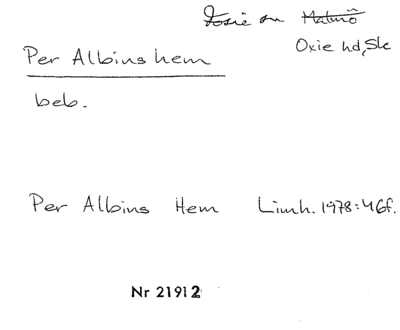 Fosie sn Malmö
Oxie hd, Sk
Per Albinshem
beb.
Per Albins Hem Limh. 1978:46f.
Nr 21912